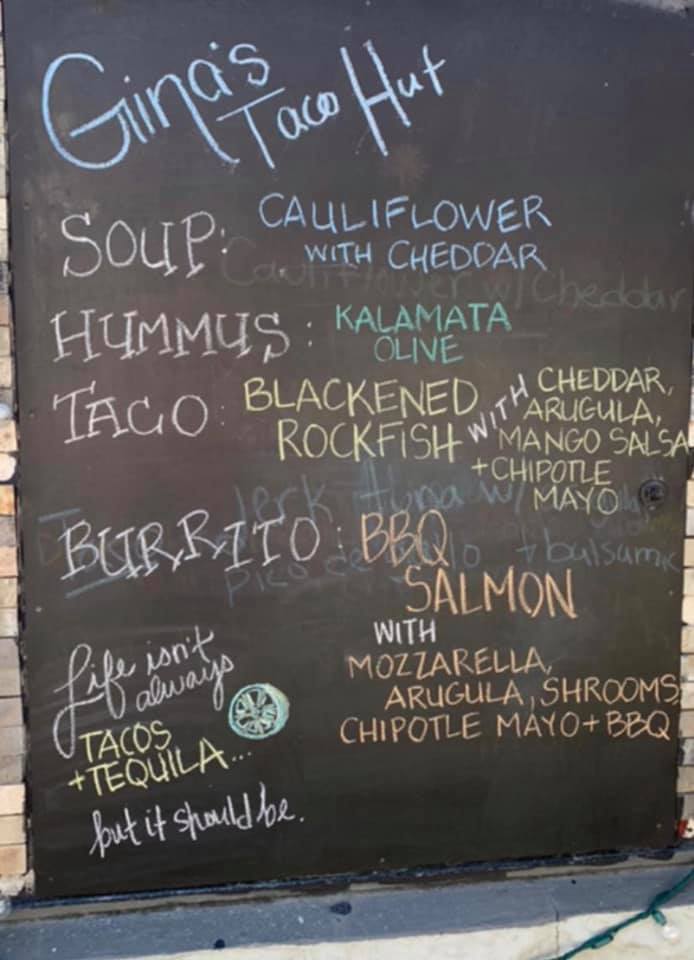 Gina's
Taco Hut
SOUP: CAULIFLOWER
WITH CHEDDAR
Cauliflower w/ Cheddar
HUMMUS: KALAMATA
OLIVE
TACO: BLACKENED
ROCKFISH WITH CHEDDAR,
ARUGULA,
MANGO SALSA
+CHIPOTLE
MAYO
Jerk tuna w/
BURRITO: BBQ
pico +balsamic
SALMON
WITH
MOZZARELLA,
ARUGULA, SHROOMS
CHIPOTLE MAYO+BBQ
Life isn't
always
TACOS
+TEQUILA...
but it should be.